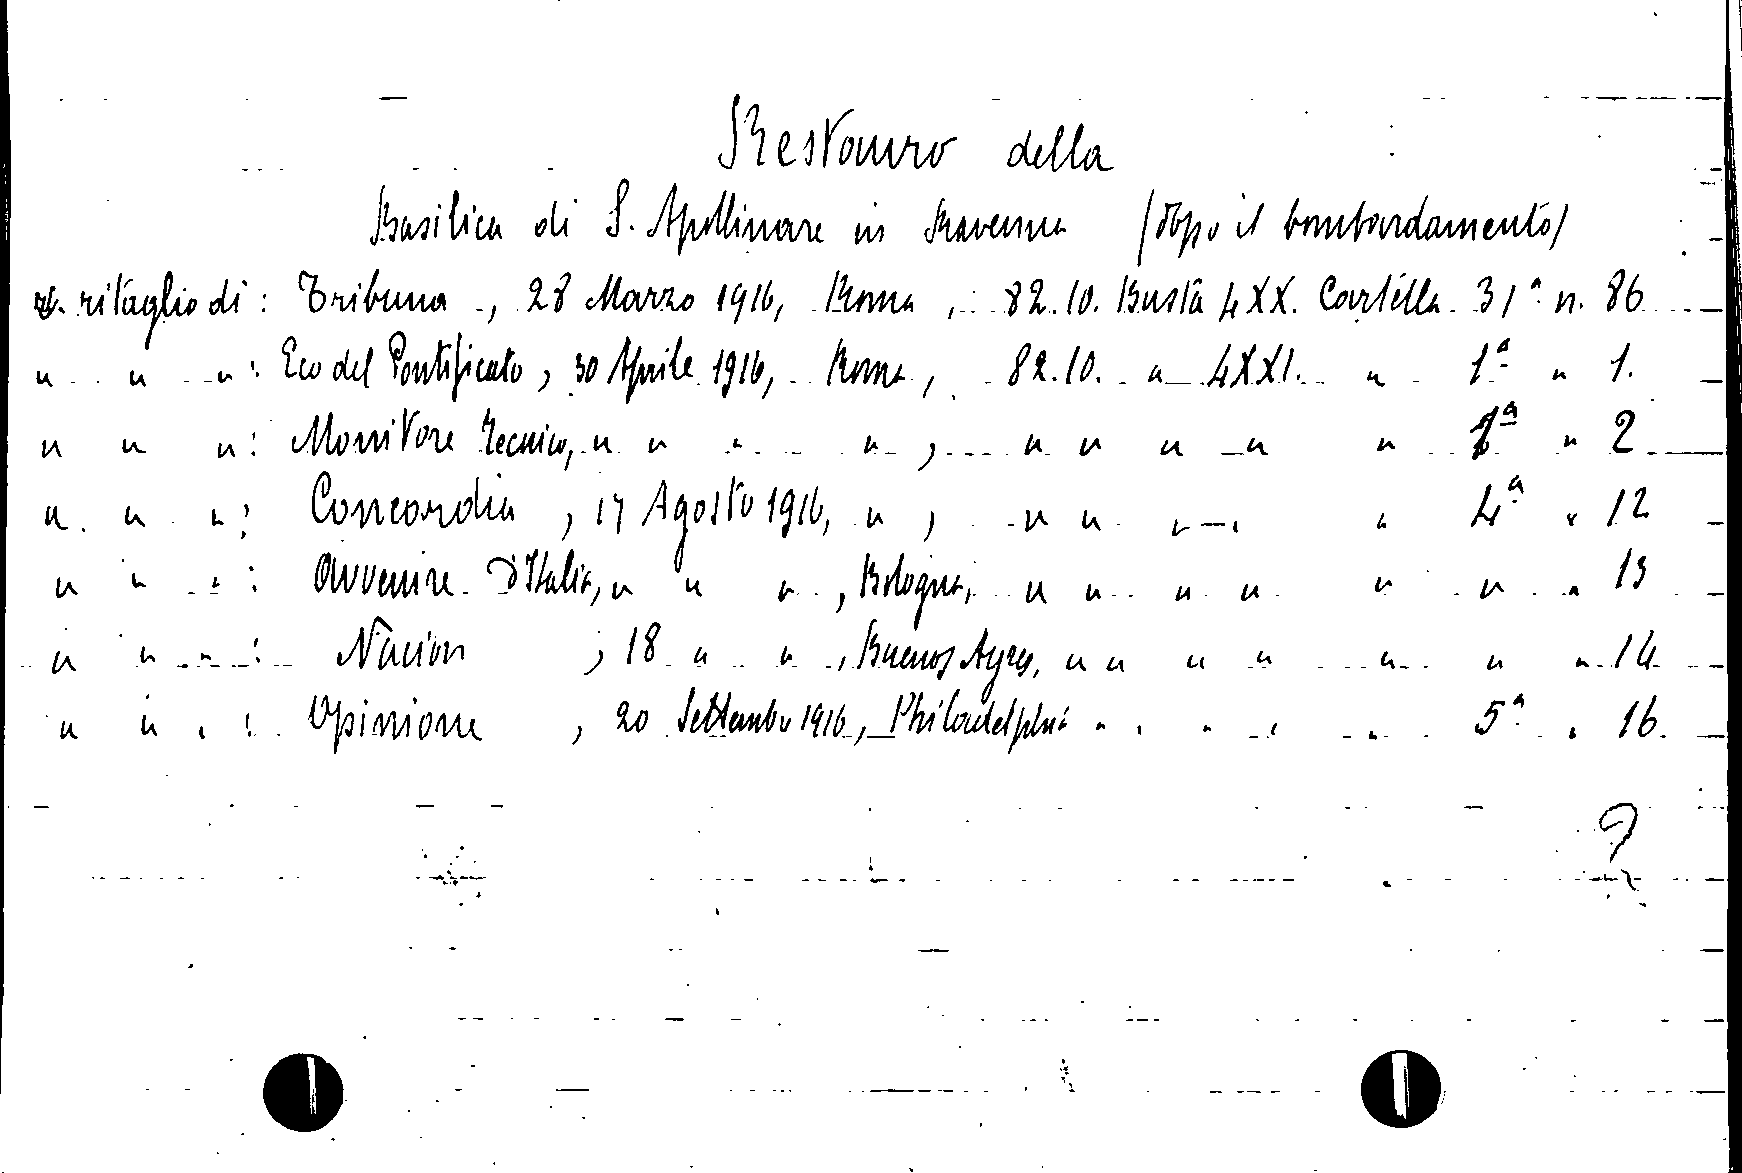 Restauro della
Basilica di S. Apollinare in Ravenna (dopo il bombardamento)
ritaglio di: Tribuna, 28 Marzo 1916, Roma, 82.10. Busta 4XX. Cartella 31ª n. 86
" " ": Eco del Pontificato, 30 Aprile 1916, Roma, 82.10. " 4XXI. " 1ª " 1.
" " ": Monitore Tecnico, " " " ", " " " " " ª " 2
" " ": Concordia, 17 Agosto 1916, ", " " " " " 4ª " 12
" " ": Avvenire D'Italia, " " ", Bologna, " " " " " " " 13
" " ": Nacion, 18 " ", Buenos Ayres, " " " " " " " 14
" " ": Opinione, 20 Settembre 1916, Philadelphia " " " " " 5ª " 16.